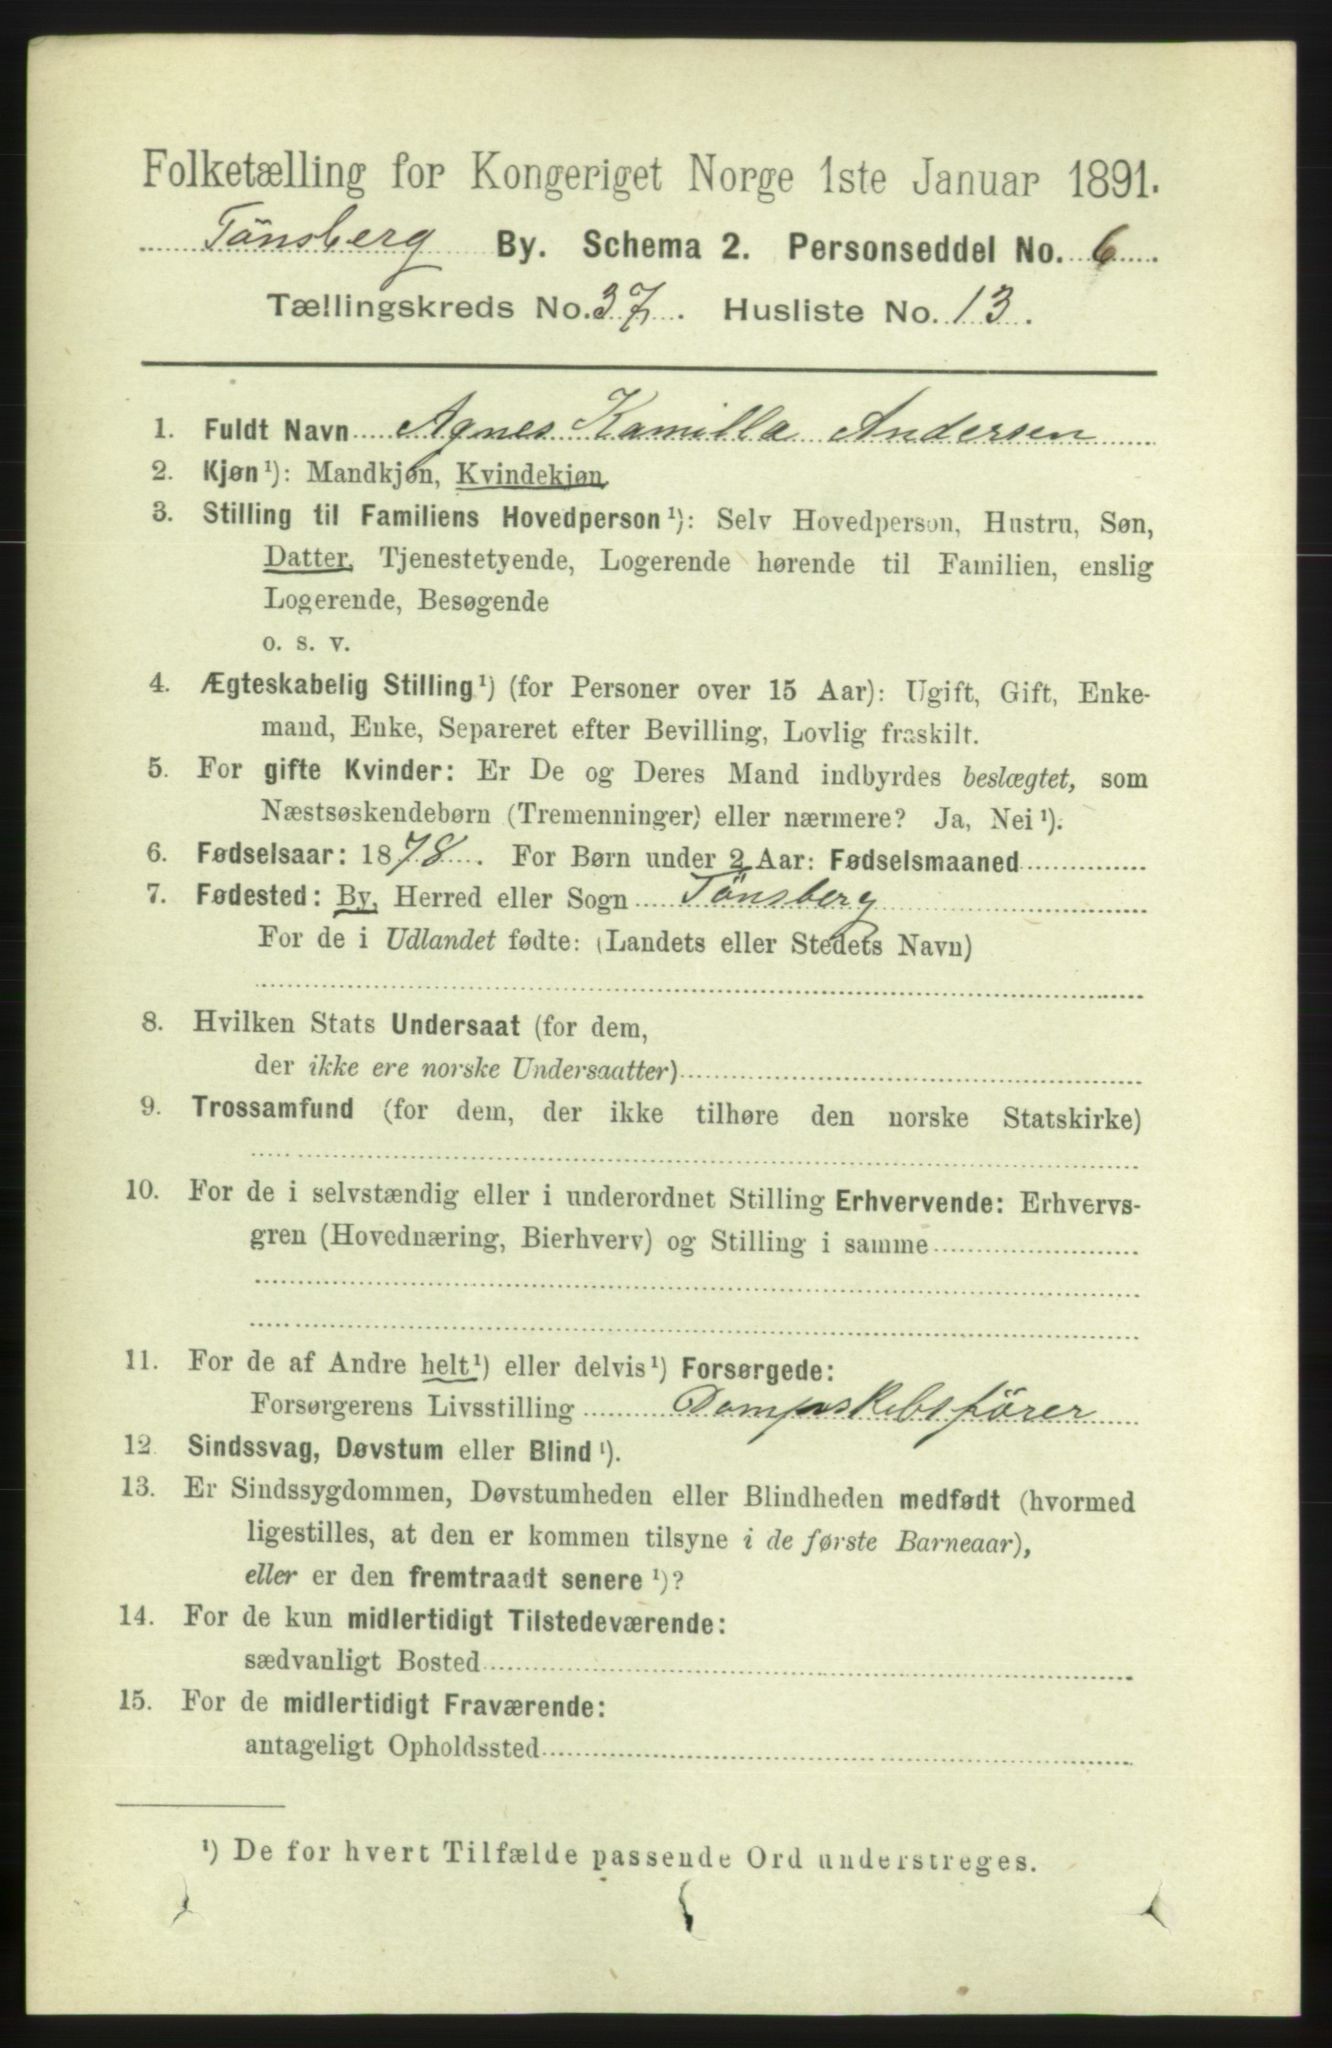 Folketælling for Kongeriget Norge 1ste Januar 1891.
Tönsberg By. Schema 2. Personseddel No. 6.
Tællingskreds No. 37. Husliste No. 13.
1. Fuldt Navn Agnes Kamilla Andersen
2. Kjøn¹): Mandkjøn, Kvindekjøn.
3. Stilling til Familiens Hovedperson¹): Selv Hovedperson, Hustru, Søn,
Datter, Tjenestetyende, Logerende hørende til Familien, enslig
Logerende, Besøgende
o. s. v.
4. Ægteskabelig Stilling¹) (for Personer over 15 Aar): Ugift, Gift, Enke-
mand, Enke, Separeret efter Bevilling, Lovlig fraskilt.
5. For gifte Kvinder: Er De og Deres Mand indbyrdes beslægtet, som
Næstsøskendebørn (Tremenninger) eller nærmere? Ja, Nei¹).
6. Fødselsaar: 1878. For Børn under 2 Aar: Fødselsmaaned
7. Fødested: By, Herred eller Sogn Tönsberg
For de i Udlandet fødte: (Landets eller Stedets Navn)
8. Hvilken Stats Undersaat (for dem,
der ikke ere norske Undersaatter)
9. Trossamfund (for dem, der ikke tilhøre den norske Statskirke)
10. For de i selvstændig eller i underordnet Stilling Erhvervende: Erhvervs-
gren (Hovednæring, Bierhverv) og Stilling i samme
11. For de af Andre helt¹) eller delvis¹) Forsørgede:
Forsørgerens Livsstilling Dampskibsförer
12 Sindssvag, Døvstum eller Blind¹).
13. Er Sindssygdommen, Døvstumheden eller Blindheden medfødt (hvormed
ligestilles, at den er kommen tilsyne i de første Barneaar),
eller er den fremtraadt senere¹)?
14. For de kun midlertidigt Tilstedeværende:
sædvanligt Bosted
15. For de midlertidigt Fraværende:
antageligt Opholdssted
¹) De for hvert Tilfælde passende Ord understreges.